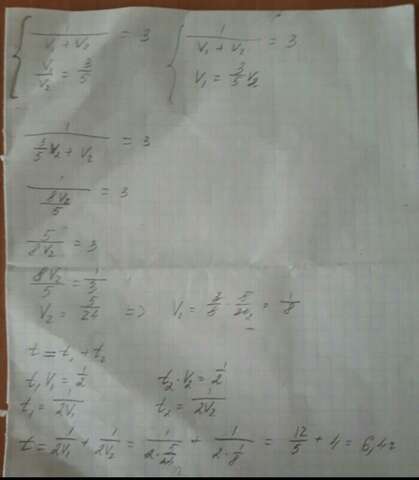 1/(V₁ + V₂) = 3    1/(V₁ + V₂) = 3
V₁/V₂ = 3/5    V₁ = 3/5 V₂
1/(3/5 V₂ + V₂) = 3
1/(8V₂/5) = 3
5/(8V₂) = 3
8V₂/5 = 1/3
V₂ = 5/24 => V₁ = 3/5 · 5/24 = 1/8
t = t₁ + t₂
t₁ V₁ = 1/2    t₂ · V₂ = 1/2
t₁ = 1/(2V₁)    t₂ = 1/(2V₂)
t = 1/(2V₁) + 1/(2V₂) = 1/(2 · 5/24) + 1/(2 · 1/8) = 12/5 + 4 = 6,4ч